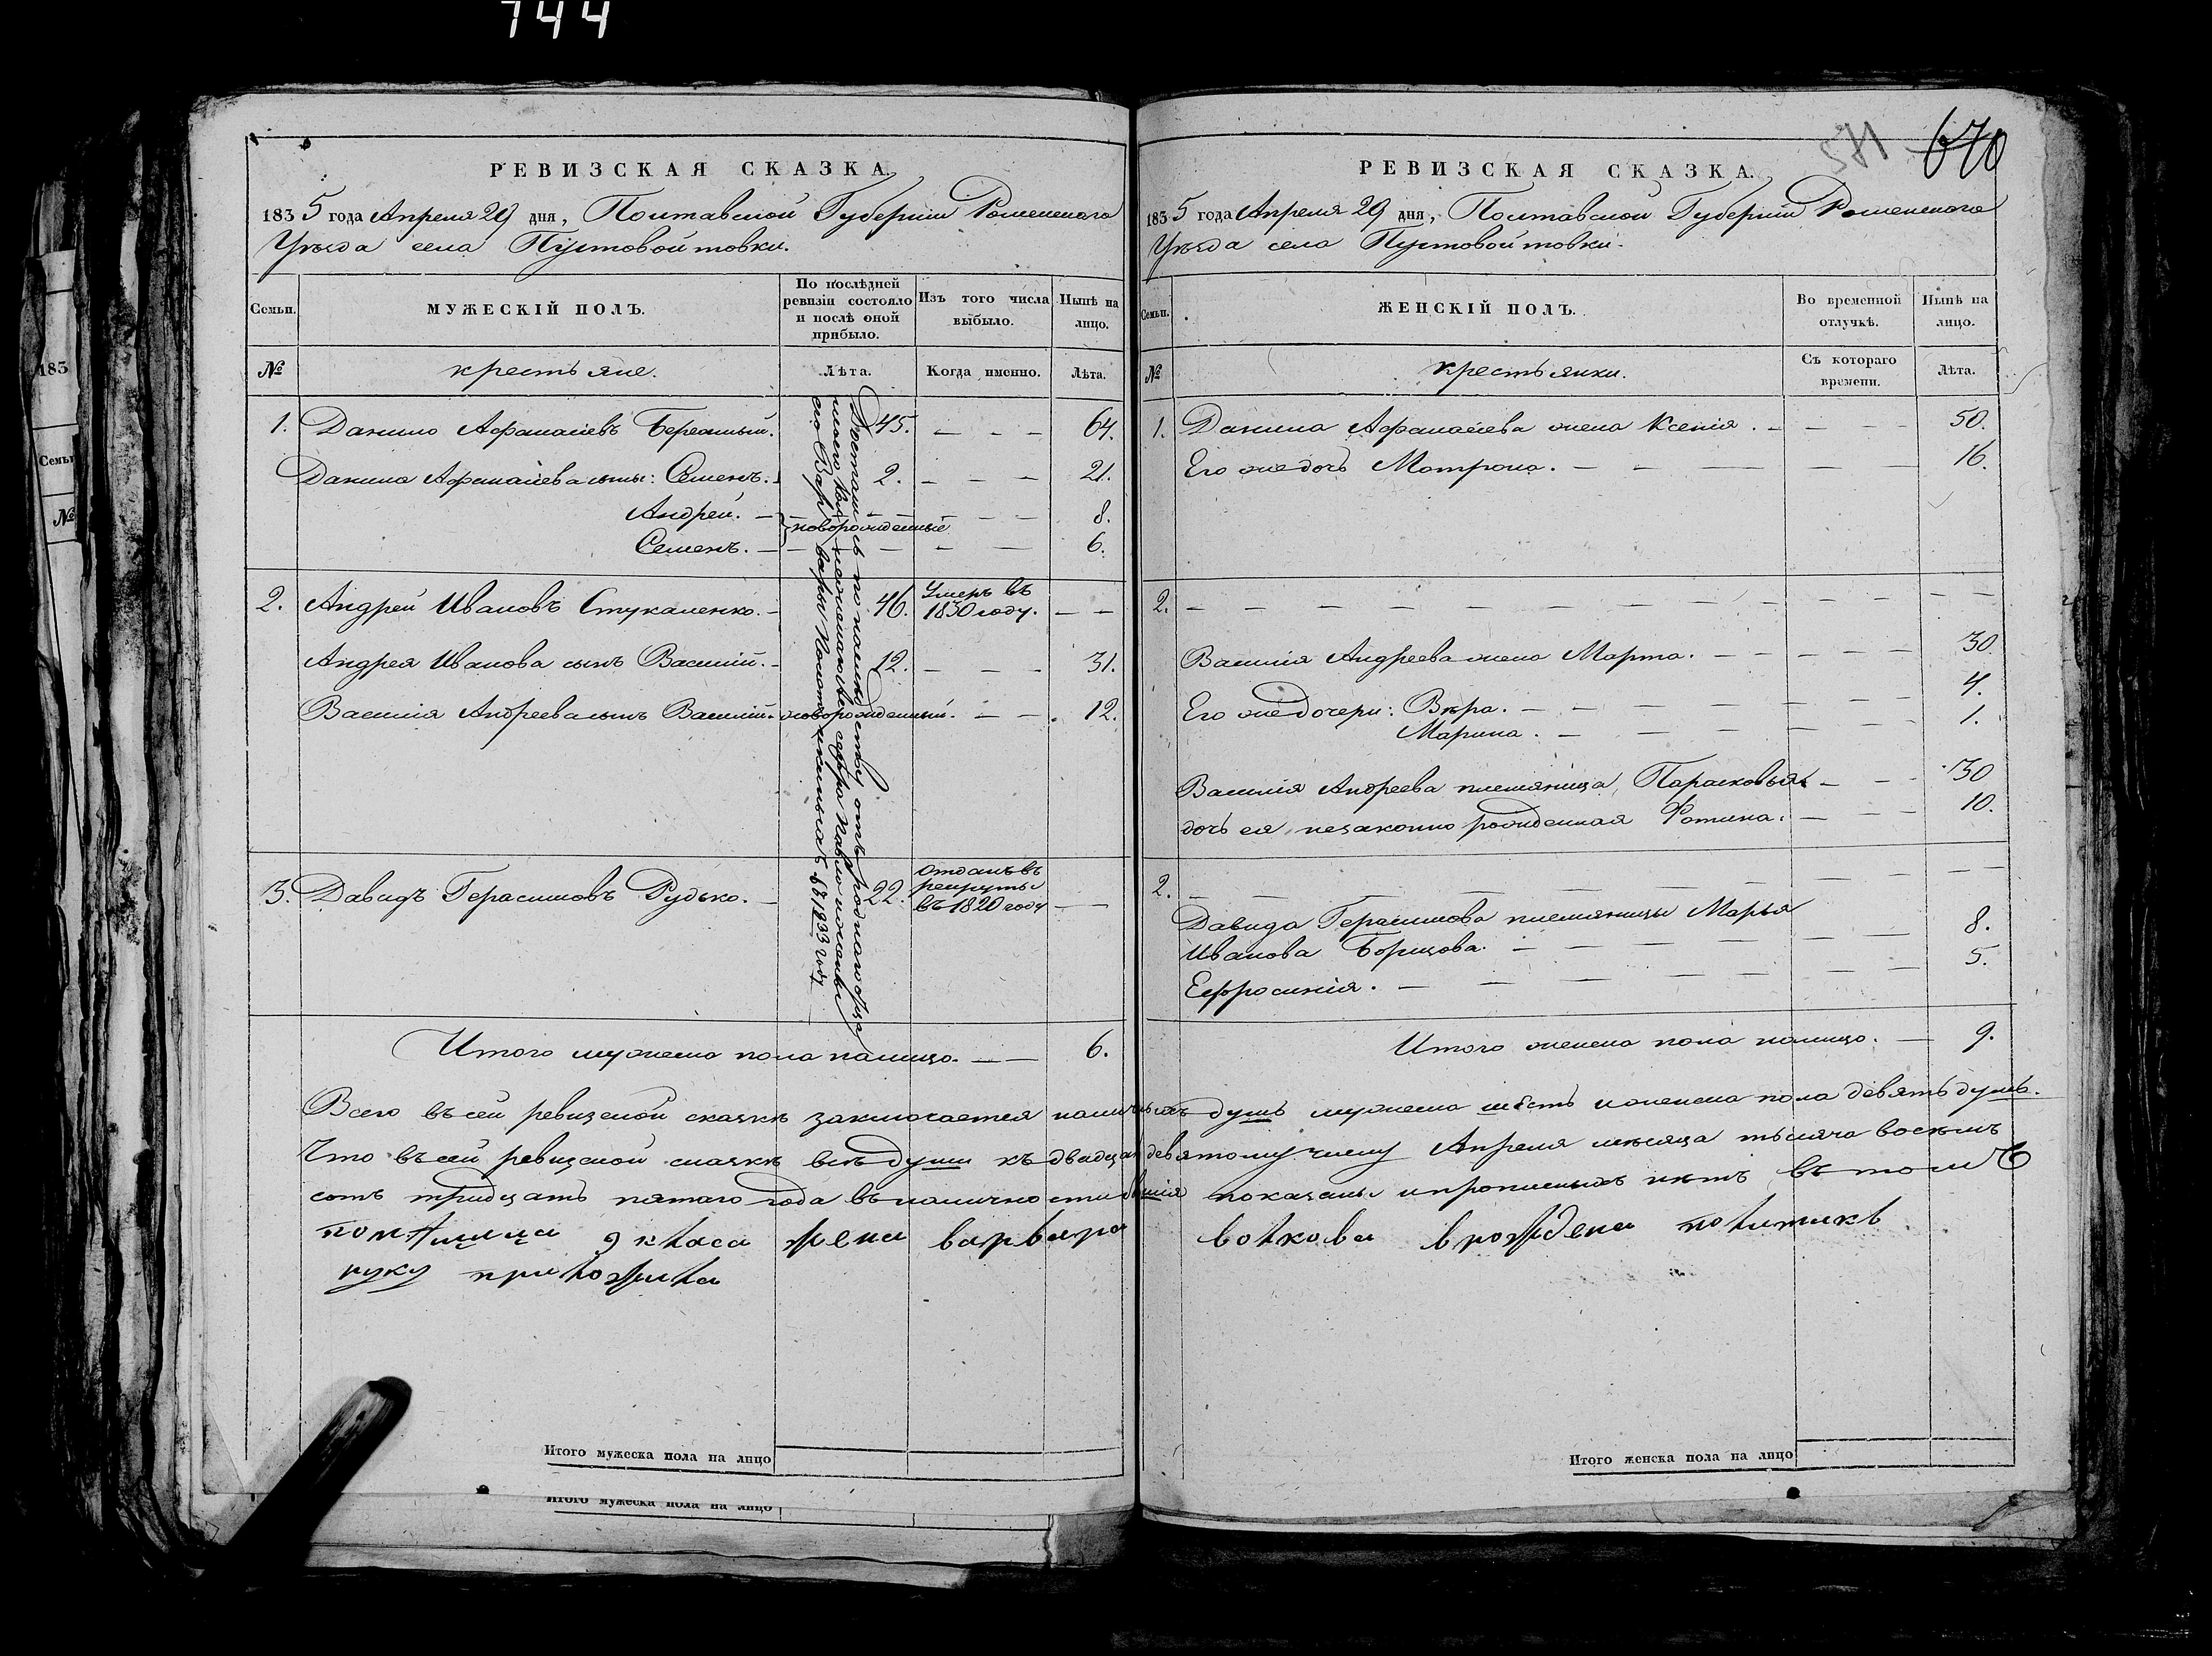 744
РЕВИЗСКАЯ СКАЗКА.
1835 года Апреля 29 дня, Полтавской Губернiи Роменского
Уѣзда села Пустовойтовки.
Семьи. МУЖЕСКІЙ ПОЛЪ. По послѣдней ревизіи состояло и послѣ оной прибыло. Изъ того числа выбыло. Нынѣ на лицо.
№ крестьяне. Лѣта. Когда именно. Лѣта.
1. Данило Афанасіевъ 45. — — — 64.
Данила Афанасіева сыны: Семенъ. 2. — — — 21.
Андрей. — новорожденные — — — 8.
Семенъ. — — — — 6.
2. Андрей Ивановъ Стукаленко. — 46. Умеръ въ 1830 году. — —
Андрея Иванова сынъ Василій. — 12. — — — 31.
Василія Андреева сынъ Василій. новорожденный. — — 12.
3. Давидъ Герасимовъ Рудько. — 22. отданъ въ рекруты въ 1820 году — —
Достались по наслѣдству отъ роднаго отца
въ 1833 году
Итого мужеска пола налицо. — — 6.
571 670
РЕВИЗСКАЯ СКАЗКА.
1835 года Апреля 29 дня, Полтавской Губернiи Роменского
Уѣзда села Пустовойтовки.
Семьи. ЖЕНСКІЙ ПОЛЪ. Во временной отлучкѣ. Нынѣ на лицо.
№ крестьянки. Съ котораго времени. Лѣта.
1. Данила Афанасіева жена Ксенія. — — — 50.
Его же дочь Матрона. — — — — — 16.
2. — — — — — — — — — —
Василія Андреева жена Марта. — — — — — 30.
Его же дочери: Вѣра. — — — — — — 4.
Марина. — — — — — — 1.
Василія Андреева племяница, Парасковья — — — 30
дочь ея, незаконно рожденная Фотина. — — — 10.
2. — — — — — —
Давида Герасимова племяницы Марья
Иванова Борцова. — — — — — — 8.
Ефросинія. — — — — — — 5.
Итого женска пола налицо. — 9.
Всего въ сей ревизской сказкѣ заключается наличныхъ душъ мужеска шесть и женска пола девять душъ.
Что въ сей ревизской сказкѣ всѣ души къ двадцать девятому числу Апреля мѣсяца тысяча восемь
сотъ тридцать пятаго года въ наличности бывшія показаны и прописныхъ нѣтъ въ томъ
помѣщица 9 класа жена варвара волкова врождена политикѣ
руку приложила
Итого мужеска пола на лицо
Итого женска пола на лицо
Итого мужеска пола на лицо
183
Семьи
№